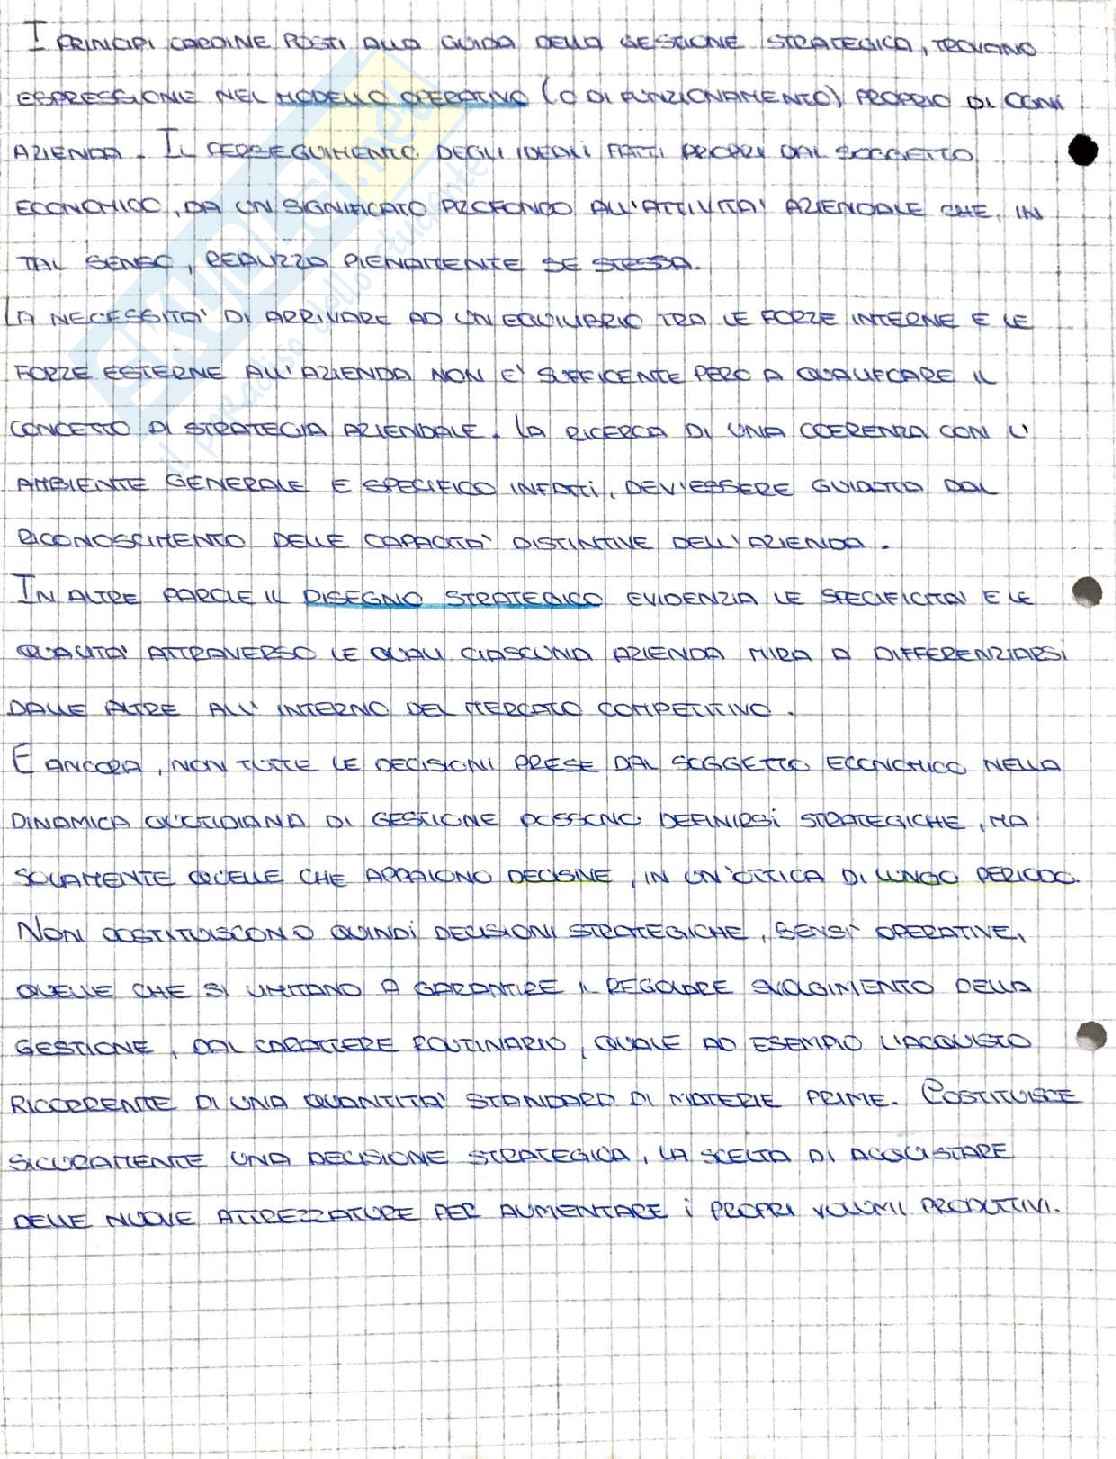 I PRINCIPI CARDINE POSTI ALLA GUIDA DELLA GESTIONE STRATEGICA, TROVANO
ESPRESSIONE NEL MODELLO OPERATIVO (O DI FUNZIONAMENTO) PROPRIO DI OGNI
AZIENDA. IL PERSEGUIMENTO DEGLI IDEALI FATTI PROPRI DAL SOGGETTO
ECONOMICO, DA UN SIGNIFICATO PROFONDO ALL'ATTIVITA' AZIENDALE CHE, IN
TAL SENSO, REALIZZA PIENAMENTE SE STESSA.
LA NECESSITA' DI ARRIVARE AD UN EQUILIBRIO TRA LE FORZE INTERNE E LE
FORZE ESTERNE ALL'AZIENDA NON E' SUFFICENTE PERO A QUALIFCARE IL
CONCETTO DI STRATEGIA AZIENDALE. LA RICERCA DI UNA COERENZA CON L'
AMBIENTE GENERALE E SPECIFICO INFATTI, DEV'ESSERE GUIDATA DAL
RICONOSCIMENTO DELLE CAPACITA' DISTINTIVE DELL'AZIENDA.
IN ALTRE PAROLE IL DISEGNO STRATEGICO EVIDENZIA LE SPECIFICITA' E LE
QUALITA' ATTRAVERSO LE QUALI CIASCUNA AZIENDA MIRA A DIFFERENZIARSI
DALLE ALTRE ALL'INTERNO DEL MERCATO COMPETITIVO.
E ANCORA, NON TUTTE LE DECISIONI PRESE DAL SOGGETTO ECONOMICO NELLA
DINAMICA QUOTIDIANA DI GESTIONE POSSONO DEFINIRSI STRATEGICHE, MA
SOLAMENTE QUELLE CHE APPAIONO DECISIVE, IN UN'OTTICA DI LUNGO PERIODO.
NON COSTITUISCONO QUINDI DECISIONI STRATEGICHE, BENSI' OPERATIVE,
QUELLE CHE SI LIMITANO A GARANTIRE IL REGOLARE SVOLGIMENTO DELLA
GESTIONE, DAL CARATTERE ROUTINARIO, QUALE AD ESEMPIO L'ACQUISTO
RICORRENTE DI UNA QUANTITA' STANDARD DI MATERIE PRIME. COSTITUISCE
SICURAMENTE UNA DECISIONE STRATEGICA, LA SCELTA DI ACQUISTARE
DELLE NUOVE ATTREZZATURE PER AUMENTARE I PROPRI VOLUMI PRODUTTIVI.
SKUOLA.net
il paradiso dello studente